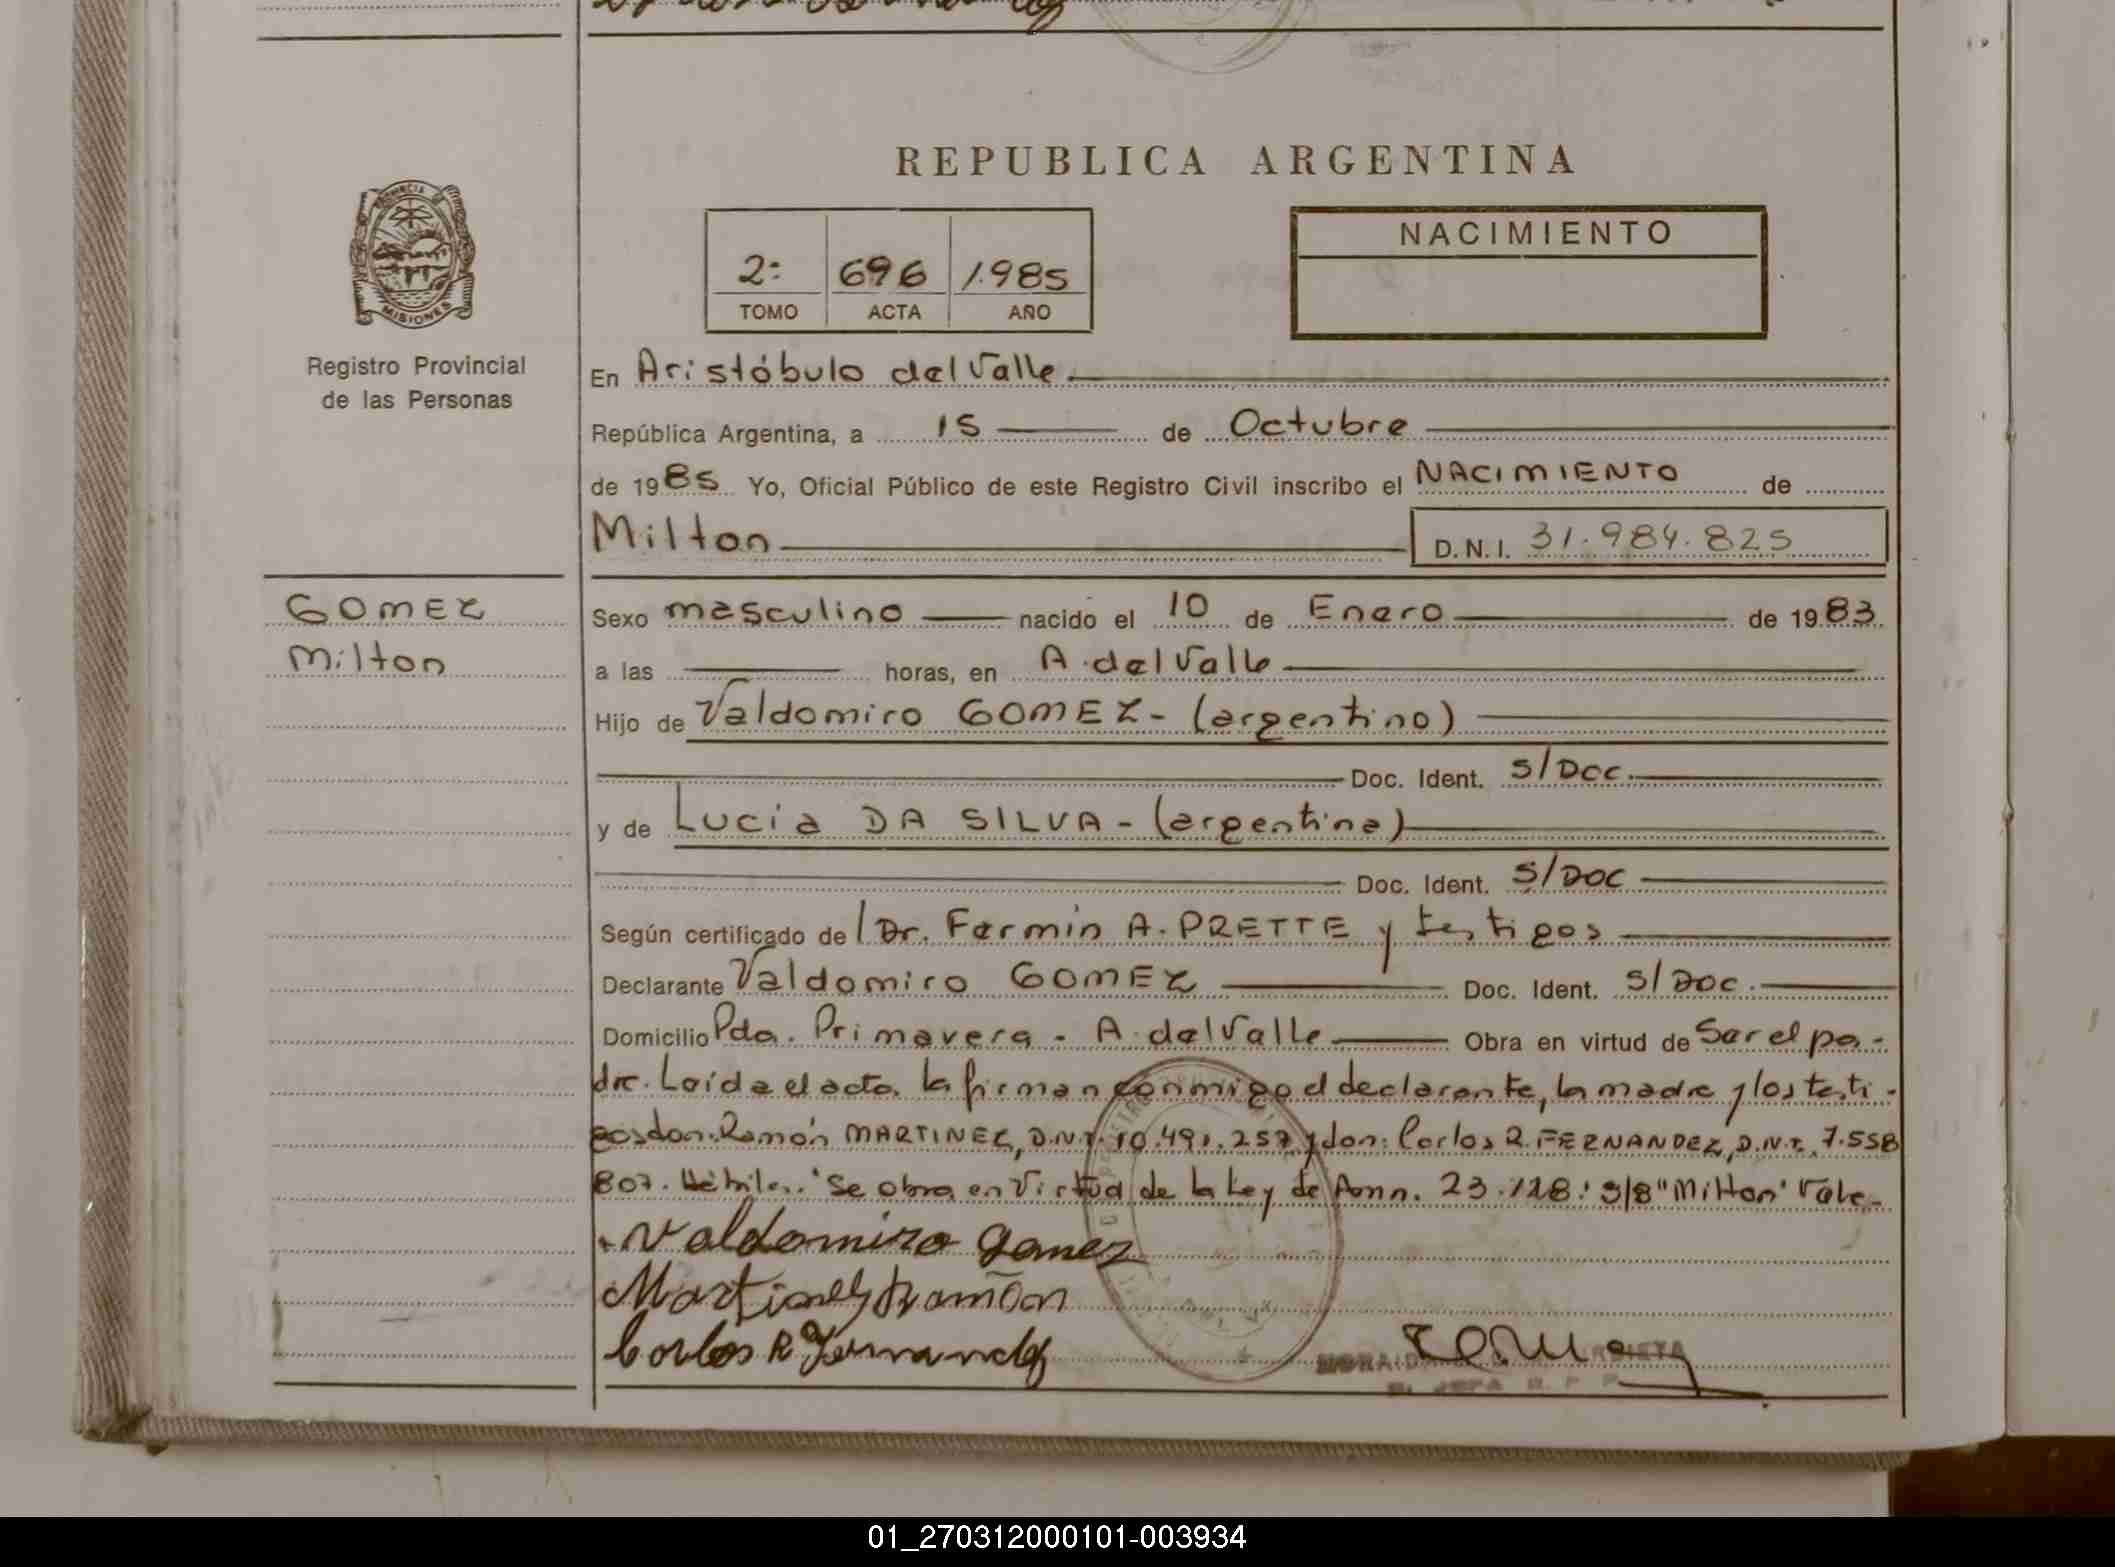 REPUBLICA ARGENTINA
PROVINCIA
MISIONES
Registro Provincial
de las Personas
2: 696 1.985
TOMO ACTA AÑO
NACIMIENTO
En Aristóbulo del Valle
República Argentina, a 15 de Octubre
de 1985 Yo, Oficial Público de este Registro Civil inscribo el NACIMIENTO de
Milton D.N.I. 31.984.825
GOMEZ
Milton
Sexo masculino nacido el 10 de Enero de 1983
a las horas, en A. del Valle
Hijo de Valdomiro GOMEZ - (argentino)
Doc. Ident. S/Doc.
y de Lucia DA SILVA - (argentina)
Doc. Ident. S/Doc
Según certificado de Dr. Fermin A. PRETTE y testigos
Declarante Valdomiro GOMEZ Doc. Ident. S/Doc.
Domicilio Pda. Primavera - A. del Valle Obra en virtud de Ser el pa-
dre. Leída el acta la firman conmigo el declarante, la madre y los testi-
gos don: Ramón MARTINEZ, D.N.I. 10.491.257 y don: Carlos R. FERNANDEZ, D.N.I. 7.558
807. Hábiles. Se obra en Virtud de la Ley de Amn. 23.128: S/B "Milton" Vale-
Valdomiro Gomez
Martinez Ramon
Carlos R Fernandez
01_270312000101-003934